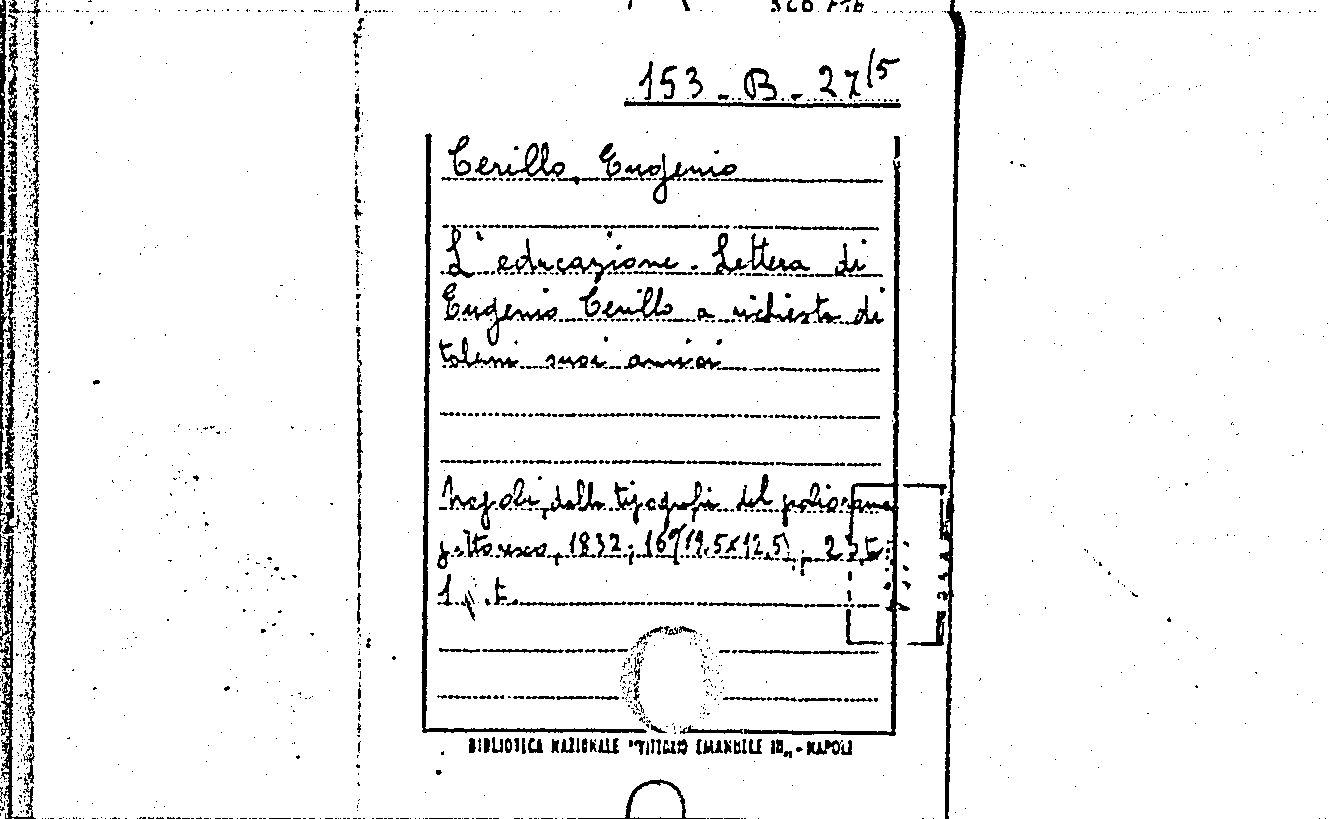 153 - B - 27/5
Cerillo, Eugenio
L'educazione. Lettera di
Eugenio Cerillo a richiesta di
taluni suoi amici
Napoli, dalla tipografia del poliorama
pittoresco, 1832; 16° (19,5x12,5),
1
BIBLIOTECA NAZIONALE "VITTORIO EMANUELE III" - NAPOLI